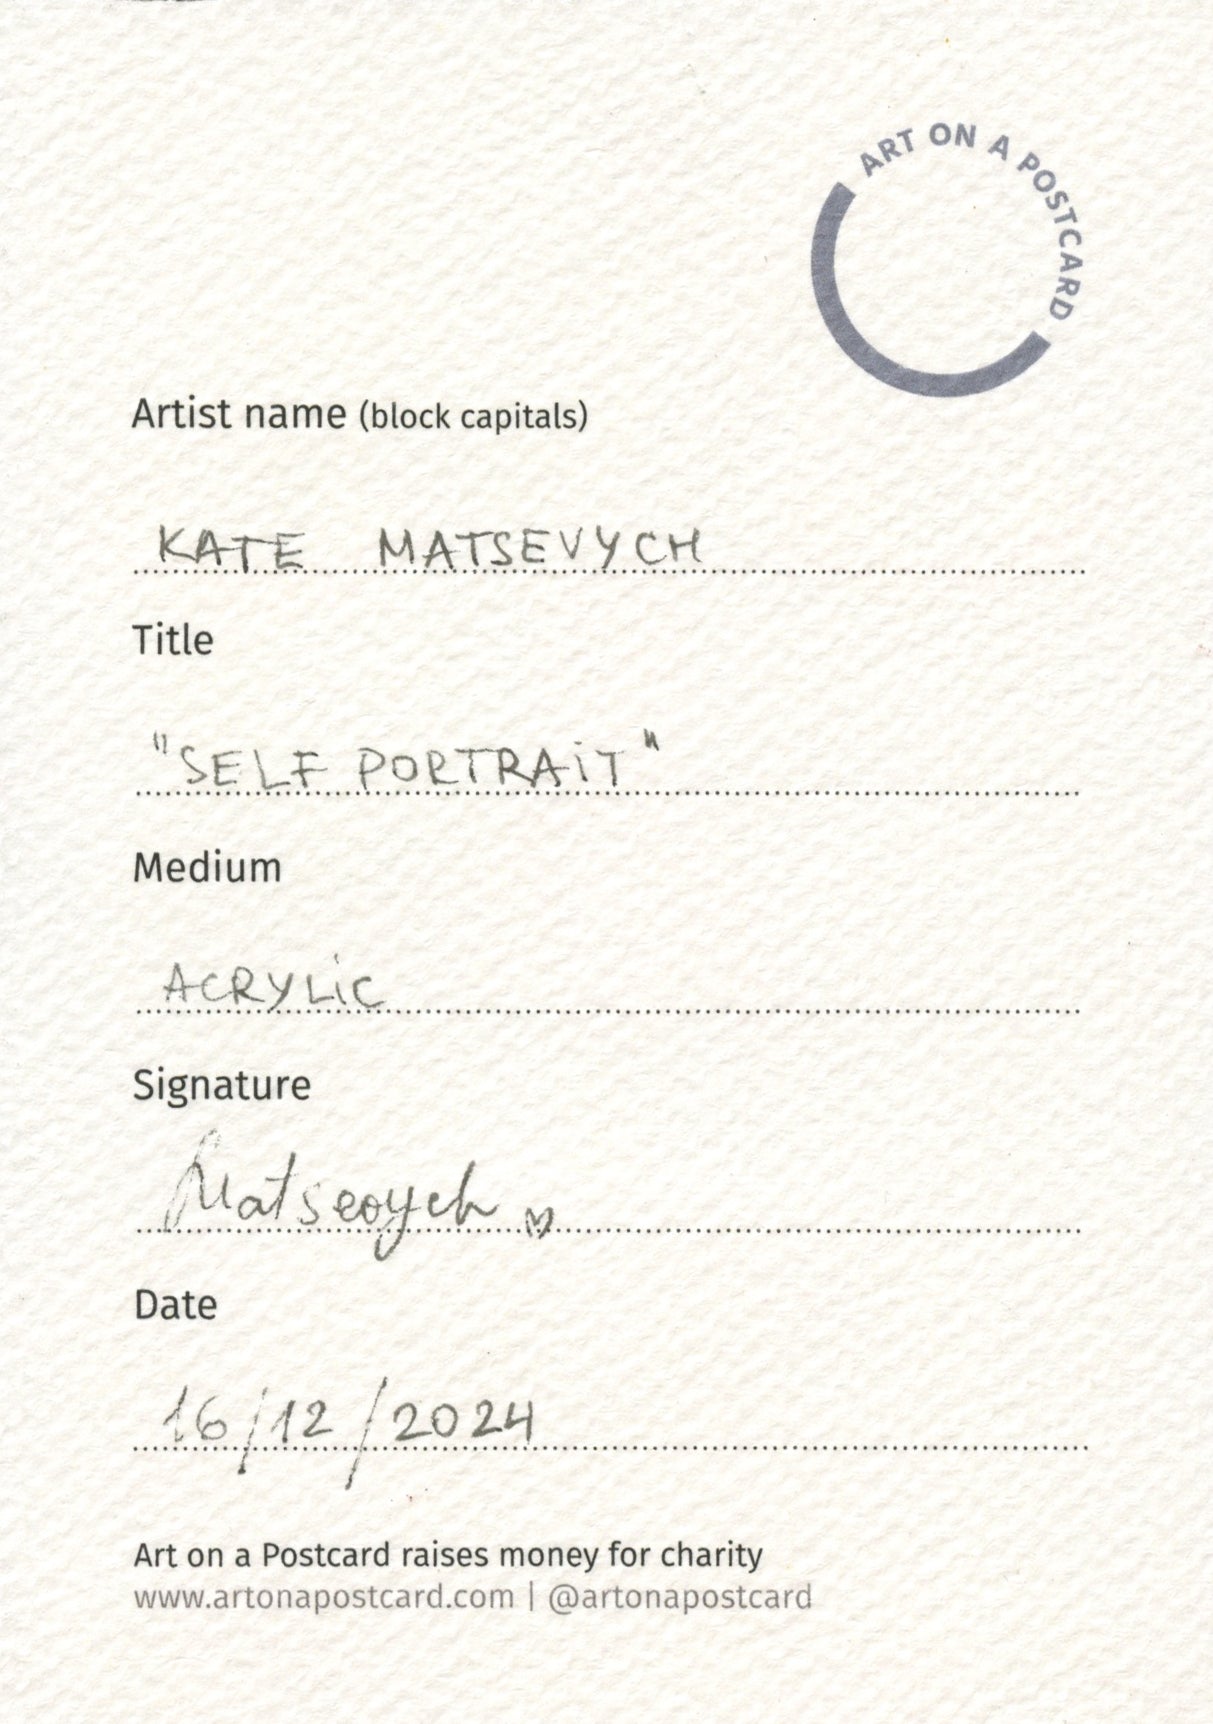 ART ON A POSTCARD
Artist name (block capitals)
KATE MATSEVYCH
Title
"SELF PORTRAiT"
Medium
ACRYLiC
Signature
Matsevych
Date
16/12/2024
Art on a Postcard raises money for charity
www.artonapostcard.com | @artonapostcard